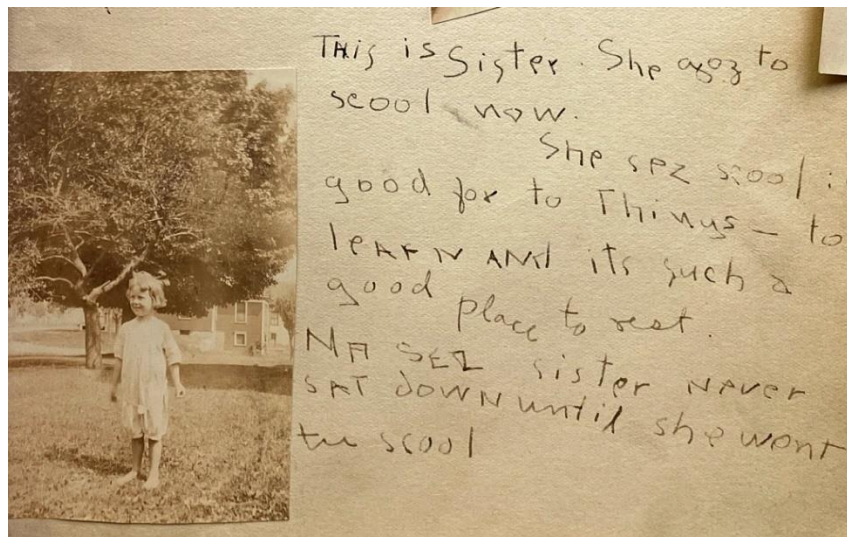 THis is Sister. She goz to
scool now.
She sez scool is
good for to Things – to
leARN AND its such a
good place to rest.
MA SEZ sister NAver
SAT DOWN until she went
tu scool